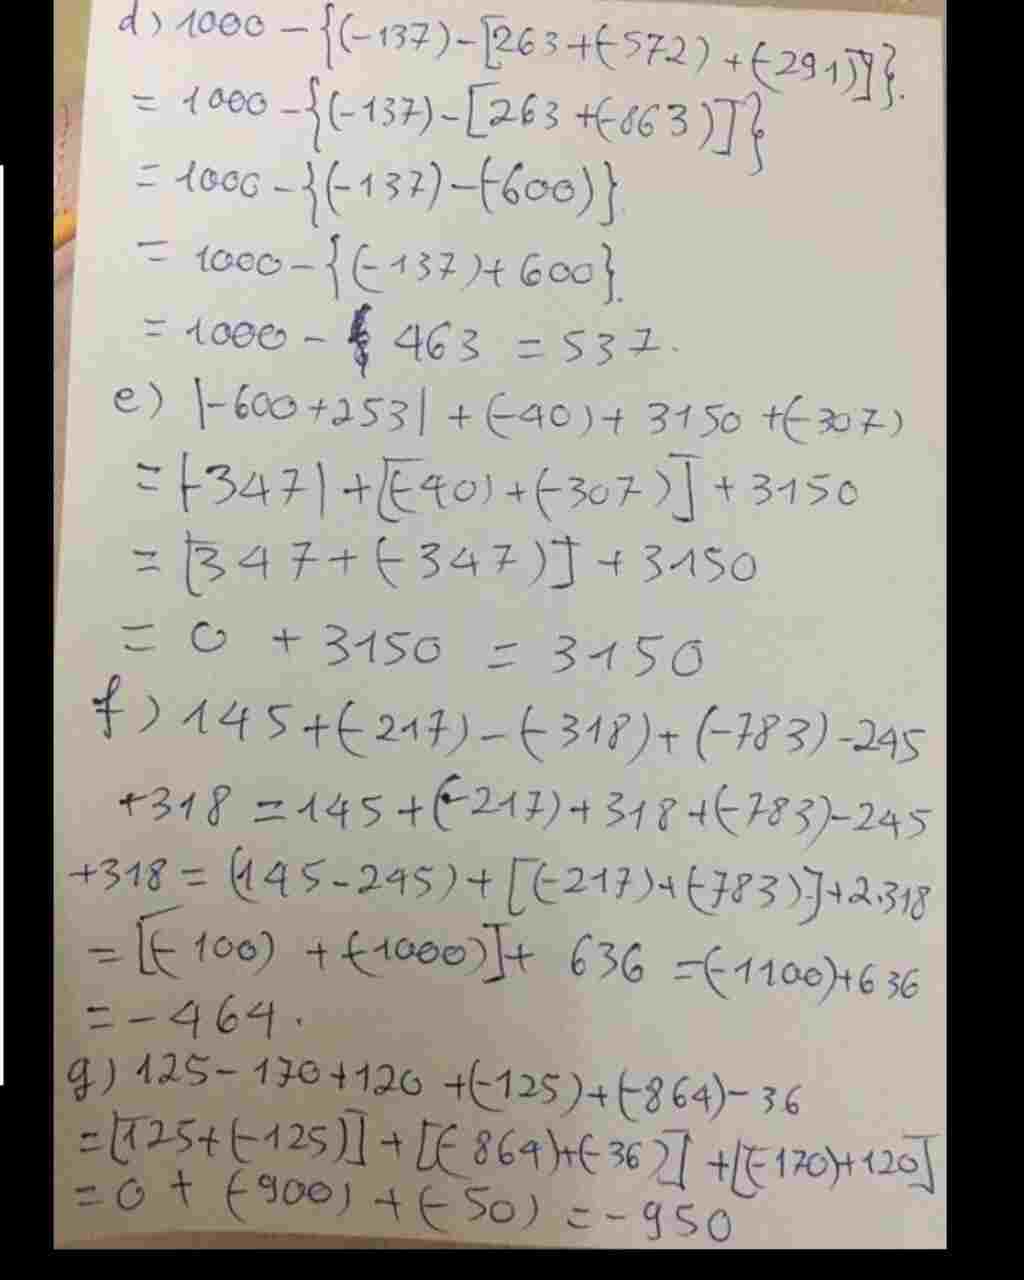 d) 1000 - {(-137) - [263 + (-572) + (-291)]}.
= 1000 - {(-137) - [263 + (-863)]}
= 1000 - {(-137) - (-600)}.
= 1000 - {(-137) + 600}.
= 1000 - 463 = 537.
e) |-600 + 253| + (-40) + 3150 + (-307)
= |-347| + [(-40) + (-307)] + 3150
= [347 + (-347)] + 3150
= 0 + 3150 = 3150
f) 145 + (-217) - (-318) + (-783) - 245
+ 318 = 145 + (-217) + 318 + (-783) - 245
+ 318 = (145 - 245) + [(-217) + (-783)] + 2.318
= [(-100) + (-1000)] + 636 = (-1100) + 636
= - 464.
g) 125 - 170 + 120 + (-125) + (-864) - 36
= [125 + (-125)] + [(-864) + (-36)] + [(-170) + 120]
= 0 + (-900) + (-50) = - 950